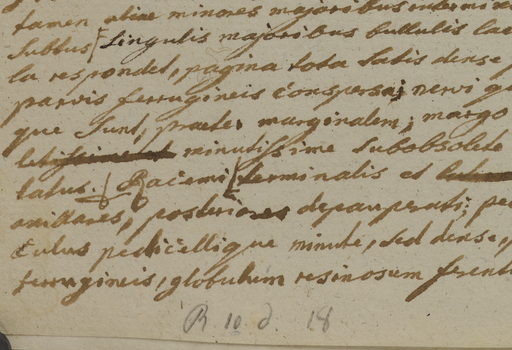 tamen aliae minores majoribus intermixt
subtus singulis majoribus bullulis lac
la respondet, pagina tota satis dense
parvis ferrugineis conspersa; nervi
que sunt, praeter marginalem; margo
minutissime subobsolete
latus. Racemi terminalis et
axillares, posteriores depauperati; pe
culus pedicellique minute, sed dense,
ferrugineis, globulum resinosum ferent
R 10 d. 18